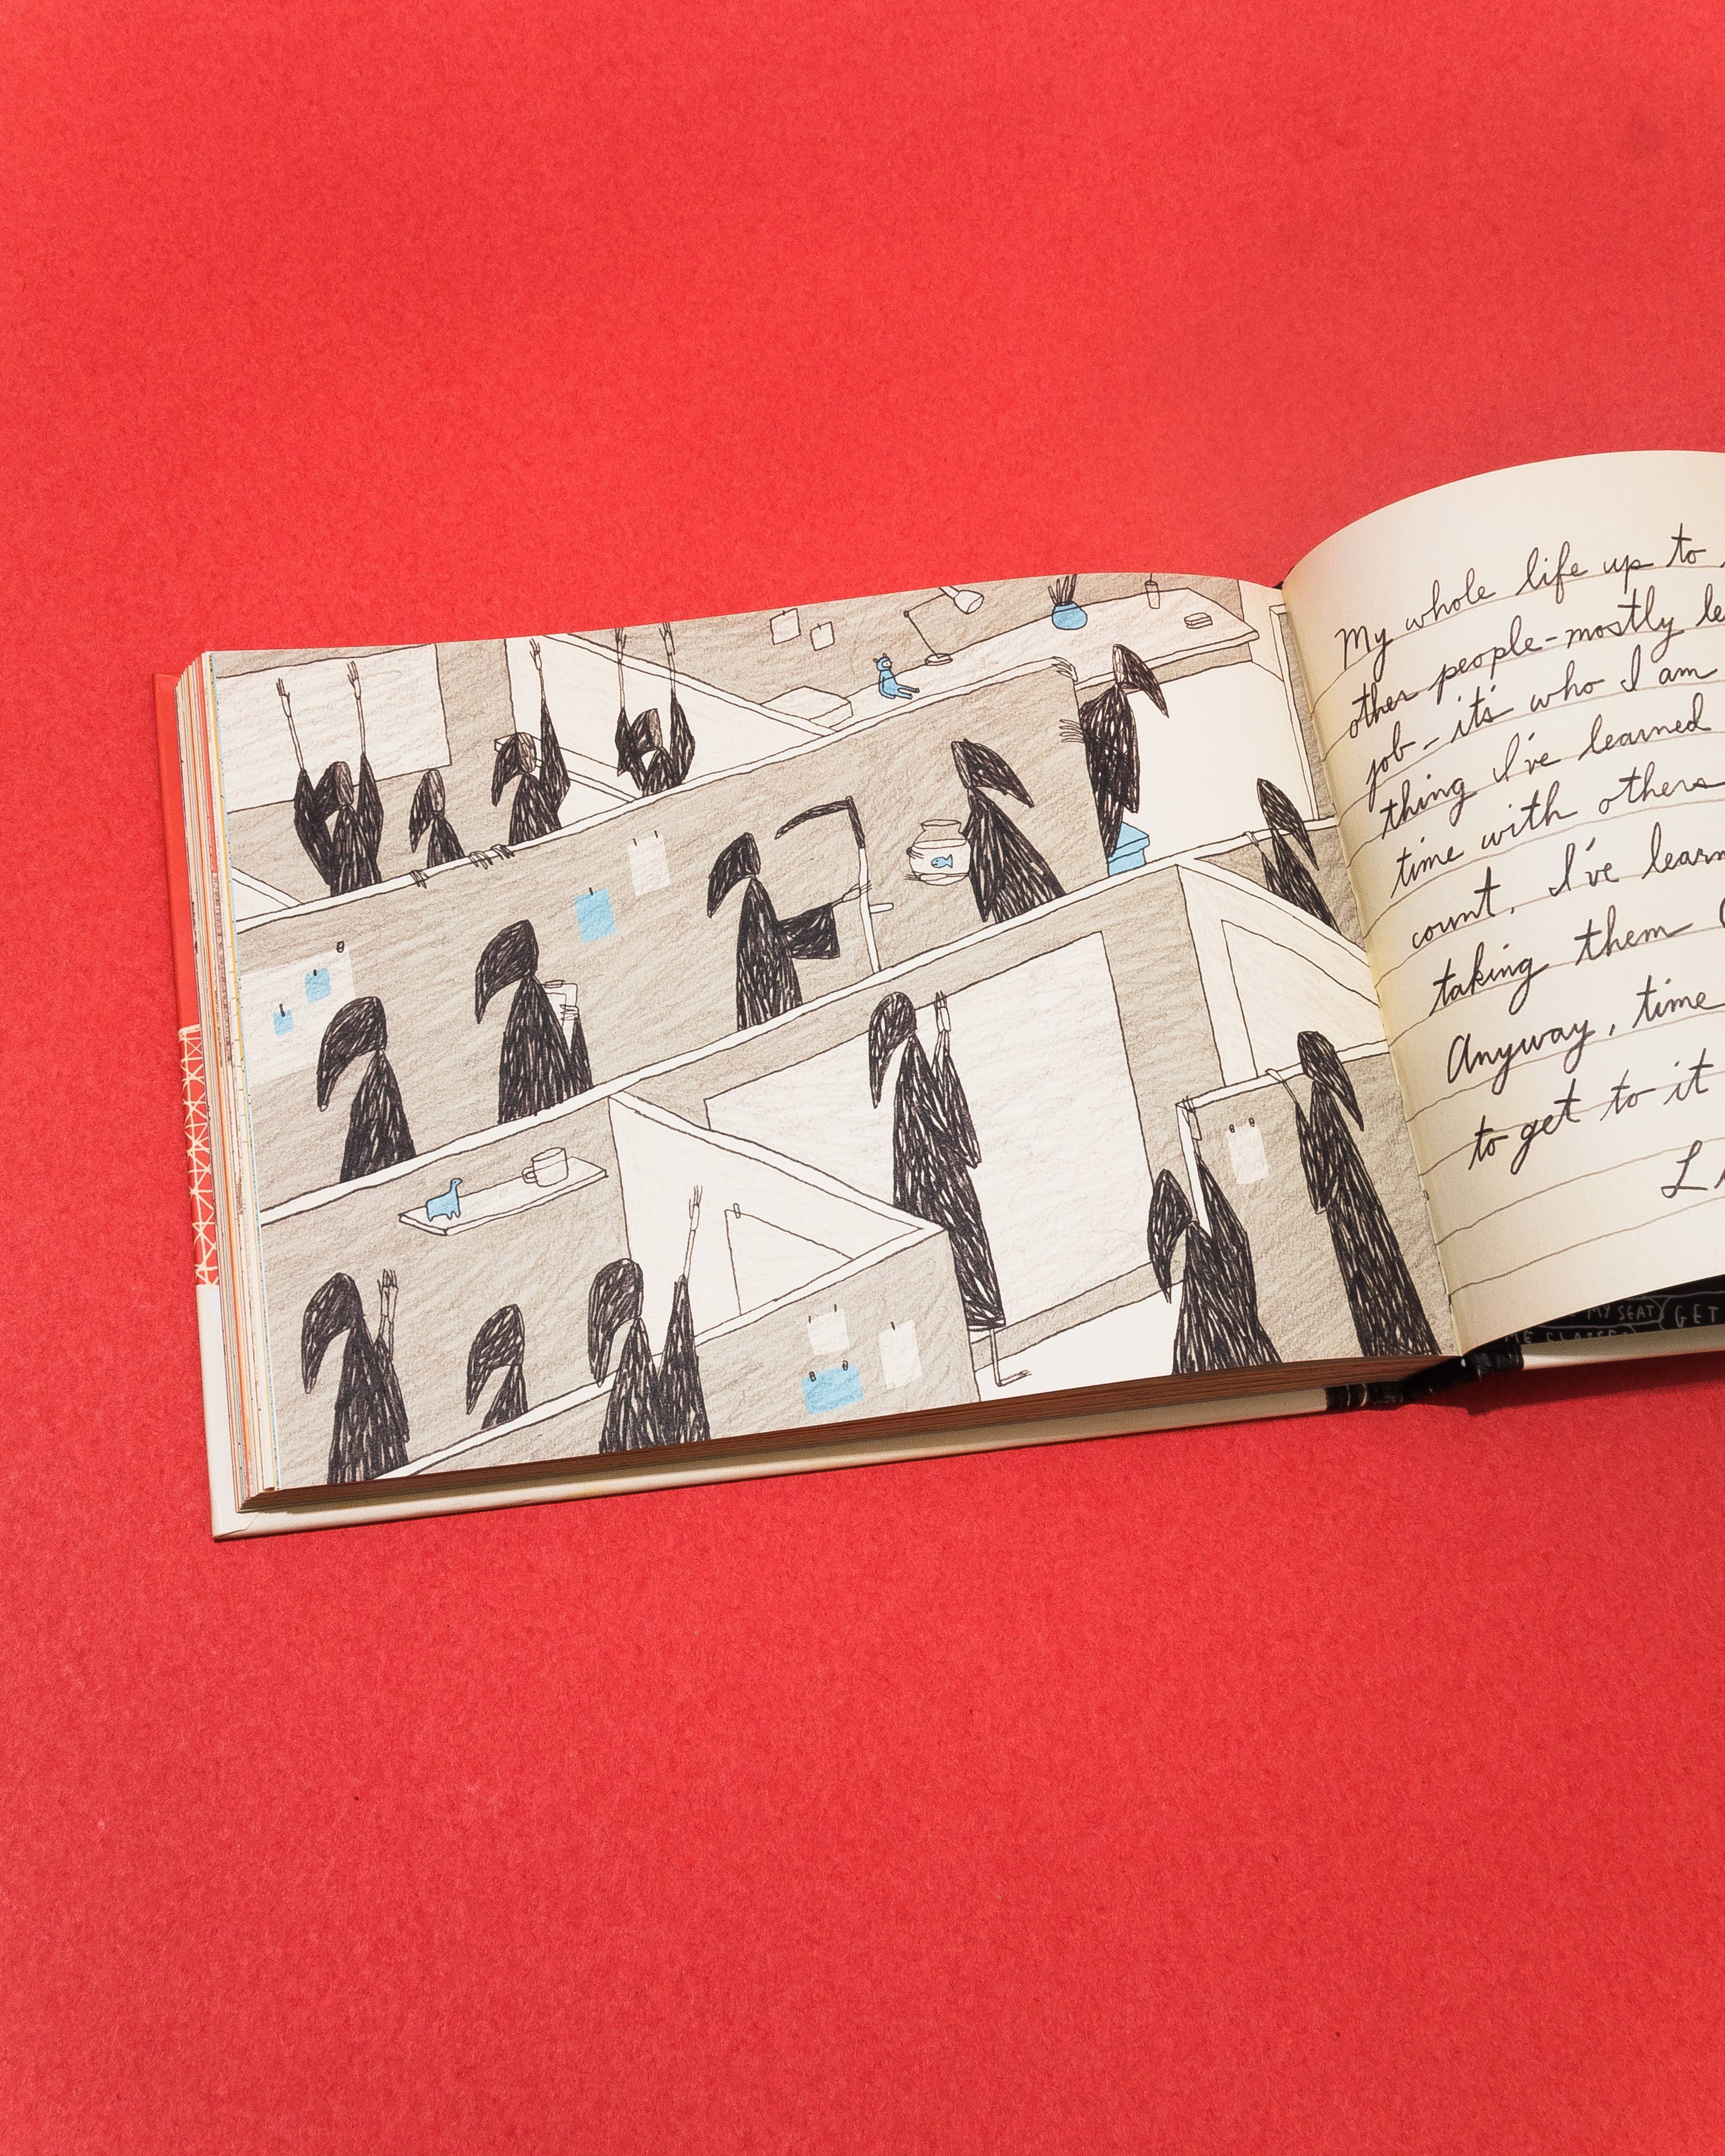 My whole life up to
other people-mostly
job - it's who I am
thing I've learned
time with others
count. I've
taking them
Anyway, time
to get to it
MY SEAT
GET